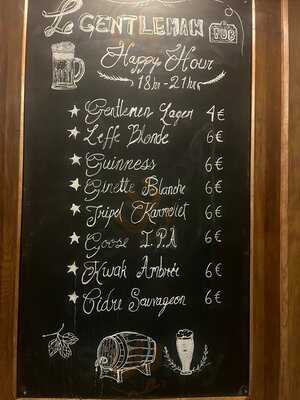 Le GENTLEMAN PUB
Happy Hour
18hr - 21hr
★ Gentlemen Lager 4€
★ Leffe Blonde 6€
★ Guinness 6€
★ Ginette Blanche 6€
★ Tripel Karmelet 6€
★ Goose I.P.A 6€
★ Kwak Ambrée 6€
★ Cidre Sauvageon 6€